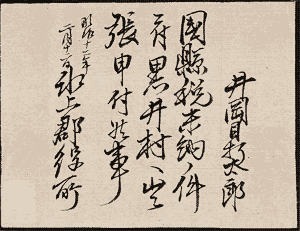 井岡貝太郎
国縣税未納ノ件
ニ付黒井村ヘ出
張申付候事
明治十二年
二月十二日 氷上郡役所